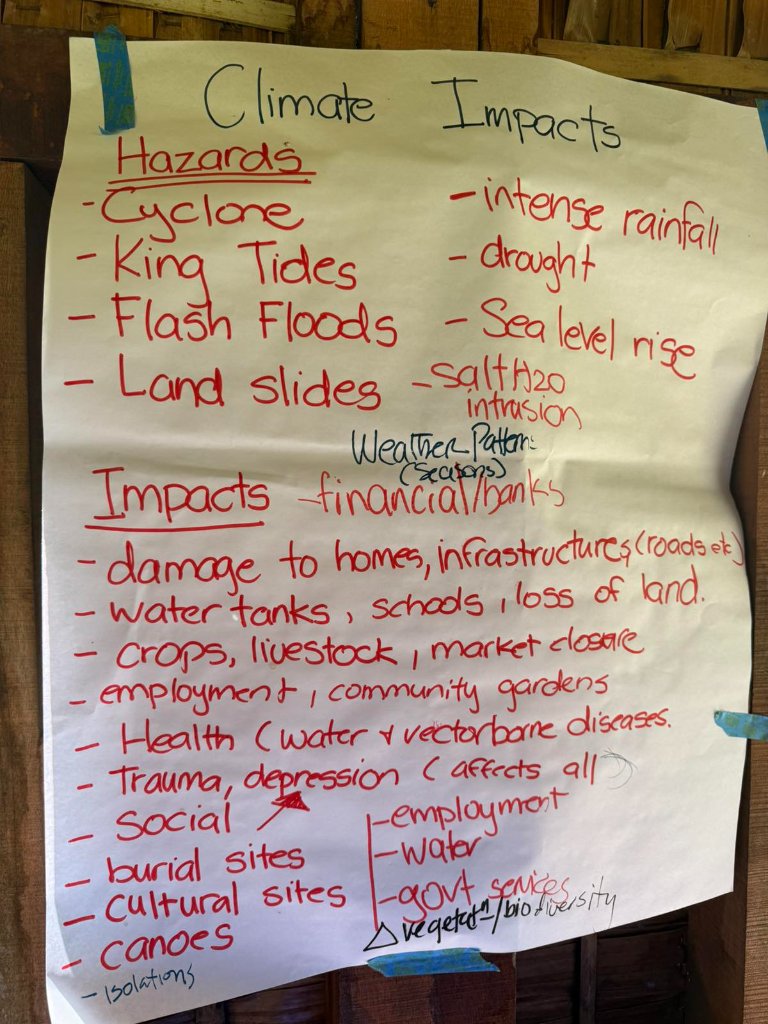 Climate Impacts
Hazards
- Cyclone
- King Tides
- Flash Floods
- Land slides
- intense rainfall
- drought
- Sea level rise
- salt H2O
intrusion
Weather Patterns
(seasons)
Impacts - financial/banks
- damage to homes, infrastructures (roads etc)
- water tanks, schools, loss of land.
- crops, livestock, market closure
- employment, community gardens
- Health (water & vectorborne diseases.
- Trauma, depression (affects all)
- Social
- burial sites
- cultural sites
- canoes
- isolations
- employment
- water
- govt services
△ vegetatn/biodiversity